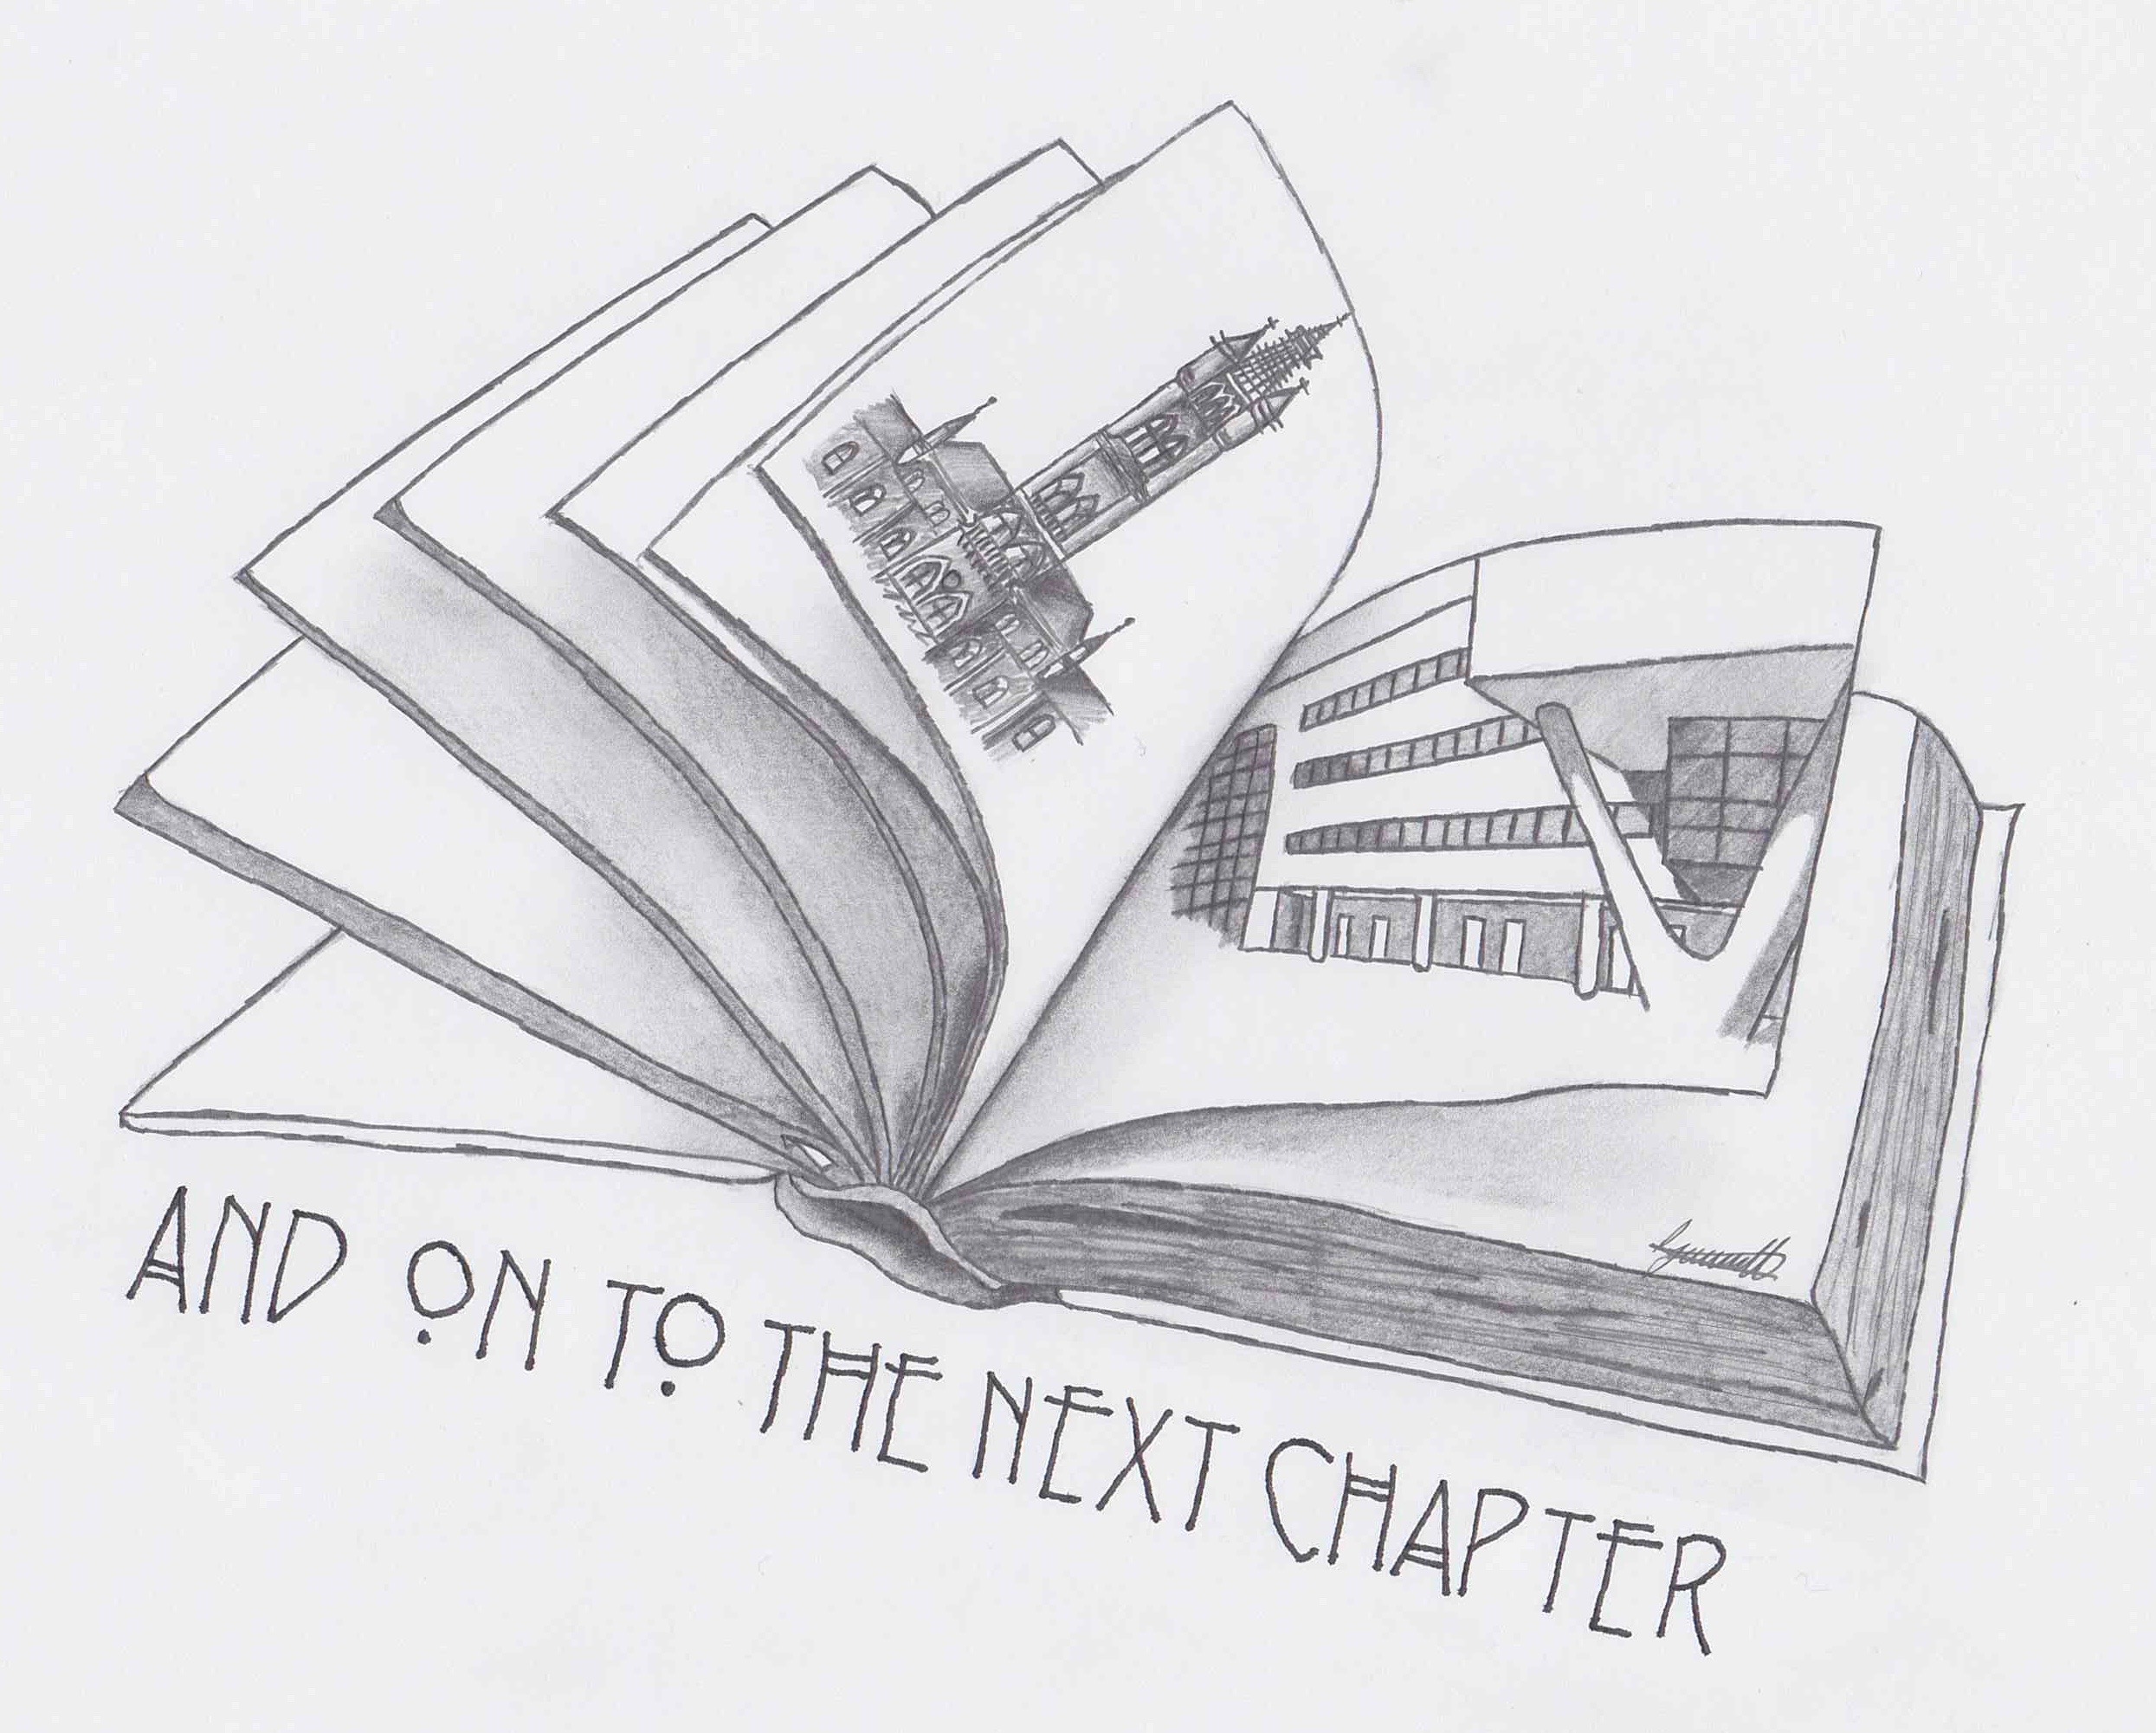 AND ON TO THE NEXT CHAPTER